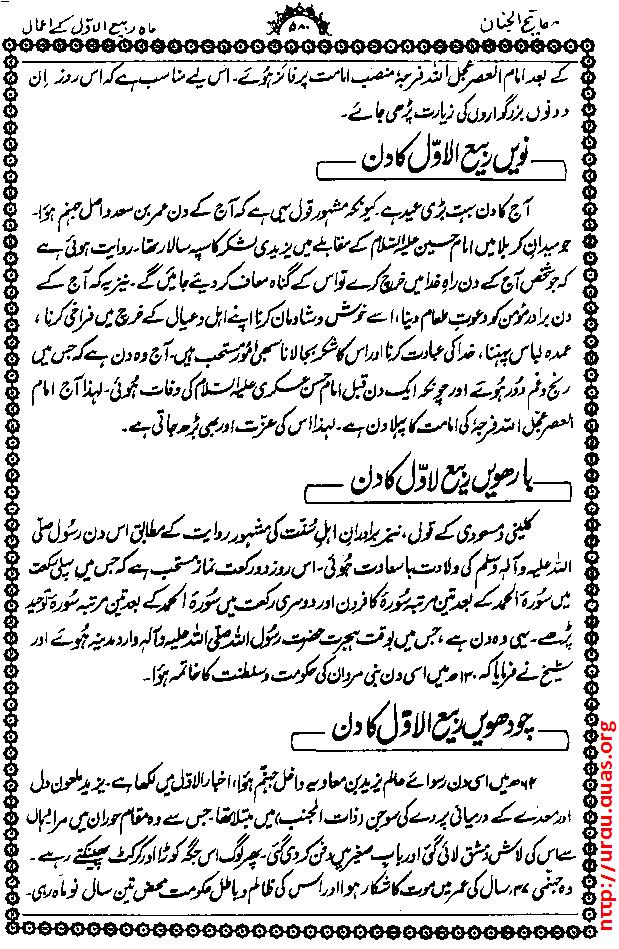 مفاتیح الجنان
۵۸۰
ماہ ربیع الاوّل کے اعمال
کے بعد امام العصر عجل اللہ فرجہٗ منصب امامت پر فائز ہوئے۔ اس لیے مناسب ہے کہ اس روز اِن
دونوں بزرگواروں کی زیارت پڑھی جائے۔
نویں ربیع الاوّل کا دن
آج کا دن بہت بڑی عید ہے۔ کیونکہ مشہور قول یہی ہے کہ آج کے دن عمر بن سعد واصل جہنم ہوا۔
جو میدانِ کربلا میں امام حسین علیہ السلام کے مقابلے میں یزیدی لشکر کا سپہ سالار تھا۔ روایت ہوئی ہے
کہ جو شخص آج کے دن راہِ خدا میں خرچ کرے تو اس کے گناہ معاف کر دیئے جائیں گے۔ نیز یہ کہ آج کے
دن برادر مؤمن کو دعوتِ طعام دینا، اسے خوش و شادمان کرنا اپنے اہل و عیال کے خرچ میں فراخی کرنا،
عمدہ لباس پہننا، خدا کی عبادت کرنا اور اس کا شکر بجا لانا سبھی امُور مستحب ہیں۔ آج وہ دن ہے کہ جس میں
رنج و غم دُور ہوئے اور چونکہ ایک دن قبل امام حسن عسکری علیہ السلام کی وفات ہُوئی۔ لہٰذا آج امام
العصر عجل اللہ فرجہٗ کی امامت کا پہلا دن ہے۔ لہٰذا اس کی عزّت اور بھی بڑھ جاتی ہے۔
بارھویں ربیع لاوّل کا دن
کلینی و مسعودی کے قول، نیز برادران اہلِ سُنّت کی مشہور روایت کے مطابق اس دن رسُول صلی
اللہ علیہ و آلہٖ وسلم کی ولادت باسعادت ہُوئی۔ اس روز دو رکعت نماز مستحب ہے کہ جس میں پہلی رکعت
میں سُورۃ الحمد کے بعد تین مرتبہ سُورۂ کافرون اور دوسری رکعت میں سُورۃ الحمد کے بعد تین مرتبہ سُورۂ توحید
پڑھے۔ یہی وہ دن ہے، جس میں بوقت ہجرت حضرت رسُول اللہ صلی اللہ علیہ و آلہٖ وارد مدینہ ہُوئے اور
شیخ نے فرمایا کہ ۱۳۰ھ میں اسی دن بنی مروان کی حکومت و سلطنت کا خاتمہ ہوا۔
چودھویں ربیع الاوّل کا دن
۶۴ھ میں اسی دن رسوائے عالم یزید بن معاویہ داخل جہنم ہوا، اخبار الاول میں لکھا ہے۔ یزید ملعون دل
اور معدے کے درمیانی پردے کی سوجن (ذات الجنب) میں مبتلا تھا۔ جس سے وہ مقام حوران میں مرا یہاں
سے اس کی لاش دمشق لائی گئی اور باب صغیر میں دفن کر دی گئی۔ پھر لوگ اس جگہ کوڑا اور کرکٹ پھینکتے رہے۔
وہ جہنمی ۳۷ سال کی عمر میں موت کا شکار ہوا اور اس کی ظالم و باطل حکومت محض تین سال نو ماہ رہی۔
http://urdu.duas.org